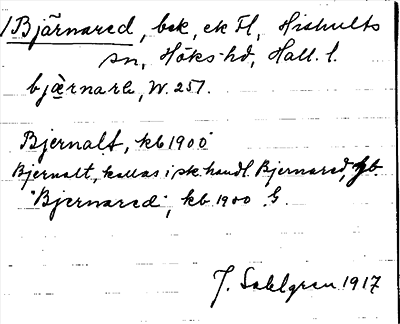 Bjärnared, bsk, ek Fl, Hishults
sn, Höks hd, Hall. l.
bjærnarə, W. 251.
Bjernalt, kb 1900
Bjernalt, kallas i sk. handl. Bjernared, kb.
"Bjernared", kb 1900 G.
J. Sahlgren 1917